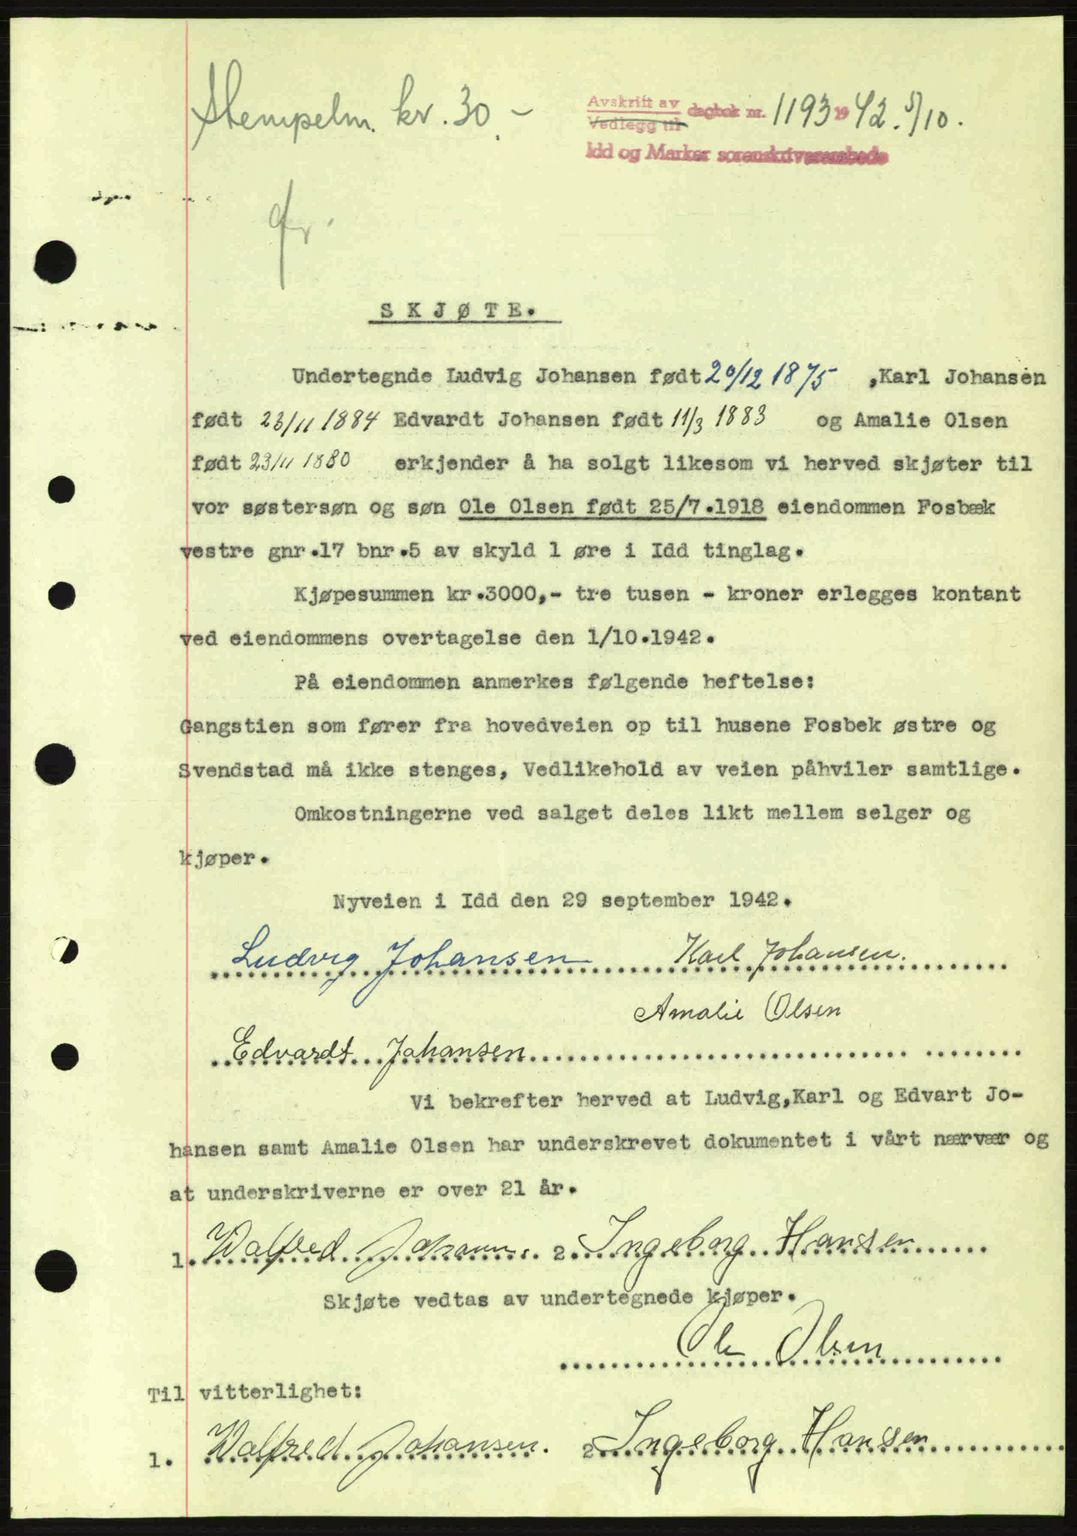 Stempelm. kr. 30.-
Avskrift av
Vedlegg til dagbok nr. 1193 1942. 5/10.
Idd og Marker sorenskriverembede
SKJØTE.
Undertegnde Ludvig Johansen født 20/12 1875 ,Karl Johansen
født 23/11 1884 Edvardt Johansen født 11/3 1883 og Amalie Olsen
født 23/11 1880 erkjender å ha solgt likesom vi herved skjøter til
vor søstersøn og søn Ole Olsen født 25/7.1918 eiendommen Fosbæk
vestre gnr.17 bnr.5 av skyld 1 øre i Idd tinglag.
Kjøpesummen kr.3000,- tre tusen - kroner erlegges kontant
ved eiendommens overtagelse den 1/10.1942.
På eiendommen anmerkes følgende heftelse:
Gangstien som fører fra hovedveien op til husene Fosbek østre og
Svendstad må ikke stenges, Vedlikehold av veien påhviler samtlige.
Omkostningerne ved salget deles likt mellem selger og
kjøper.
Nyveien i Idd den 29 september 1942.
Ludvig Johansen Karl Johansen.
Amalie Olsen
Edvardt Johansen
Vi bekrefter herved at Ludvig,Karl og Edvart Jo-
hansen samt Amalie Olsen har underskrevet dokumentet i vårt nærvær og
at underskriverne er over 21 år.
1. Walfred Johansen. 2. Ingeborg Hansen
Skjøte vedtas av undertegnede kjøper.
Ole Olsen
Til vitterlighet:
1. Walfred Johansen. 2. Ingeborg Hansen